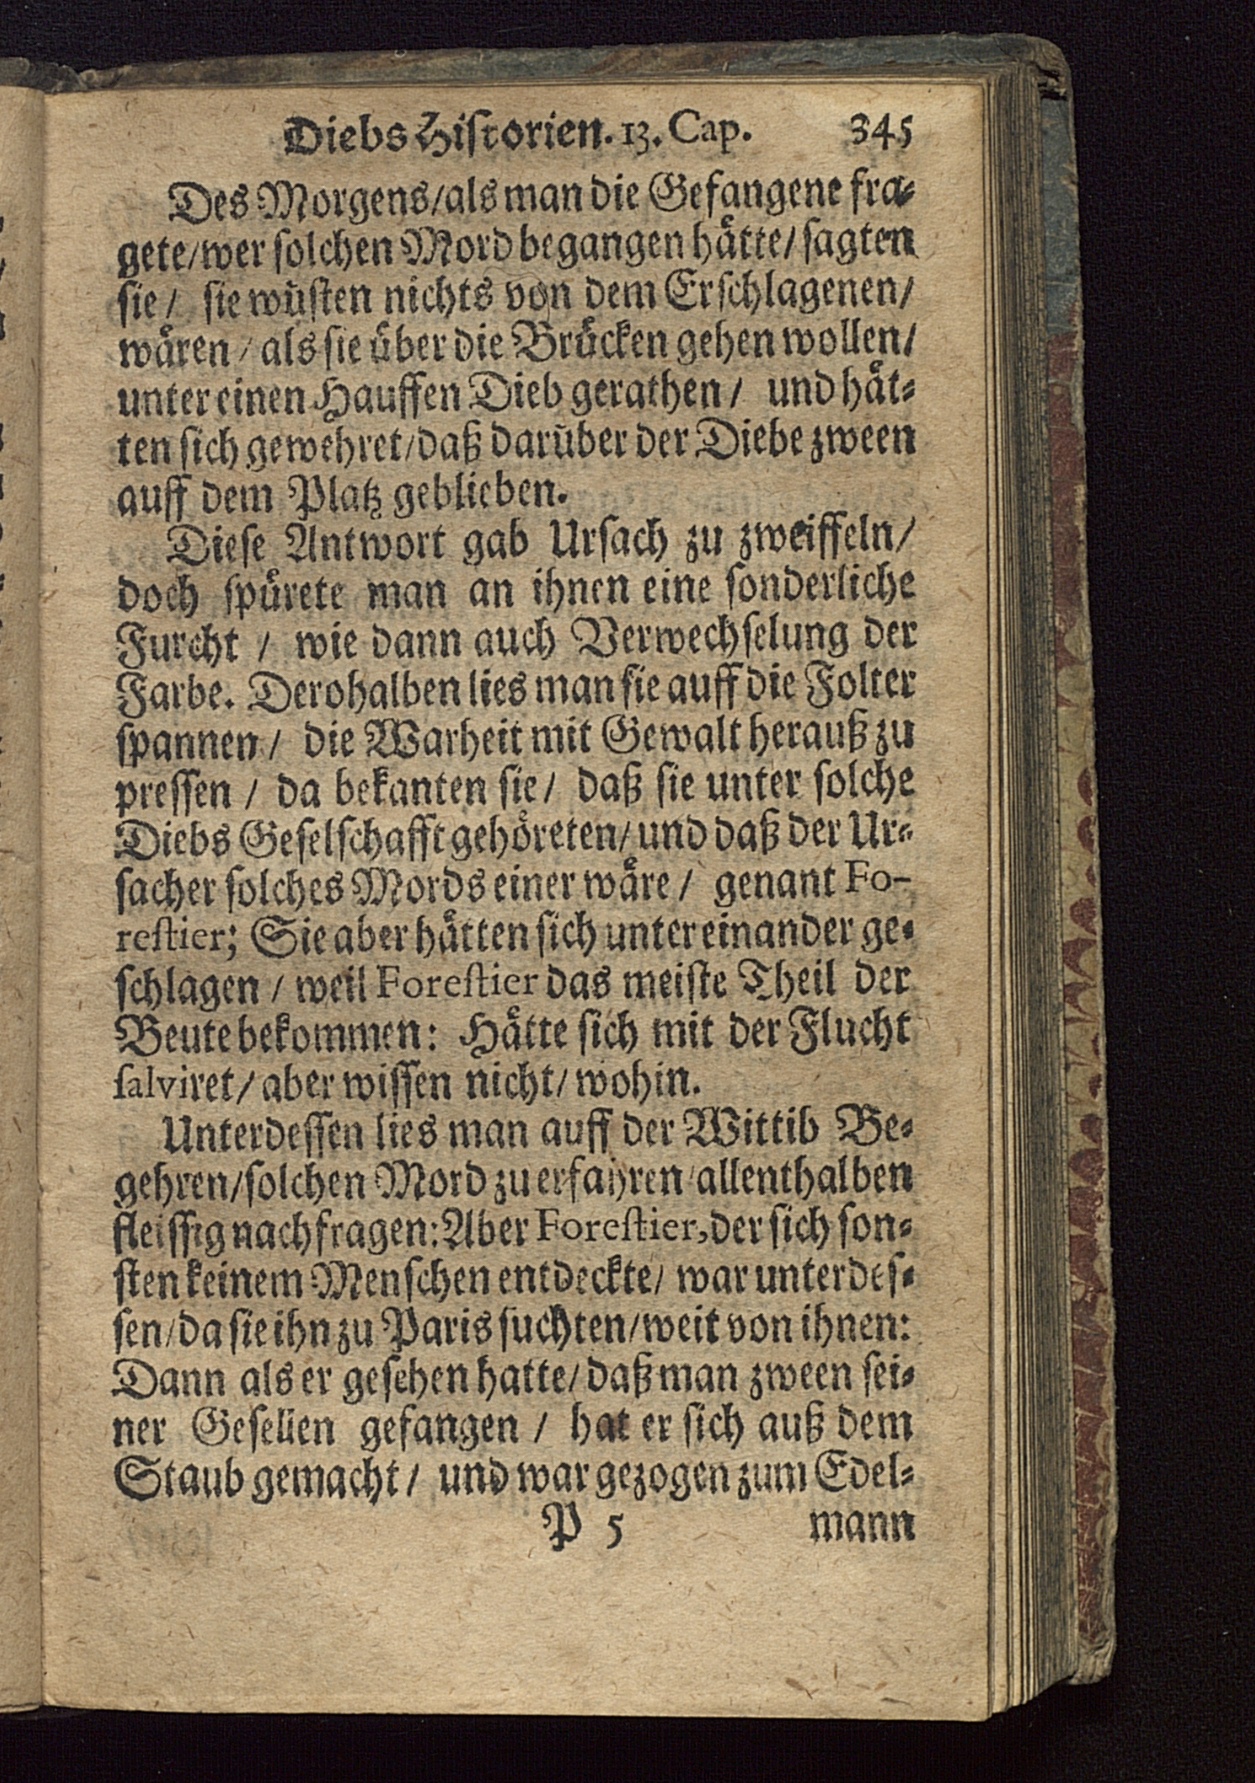 Diebs Historien. 13. Cap. 345
Des Morgens/als man die Gefangene fra-
gete/wer solchen Mord begangen hätte/sagten
sie/ sie wüsten nichts von dem Erschlagenen/
wären/als sie über die Brücken gehen wollen/
unter einen Hauffen Dieb gerathen/ und hät-
ten sich gewehret/daß darüber der Diebe zween
auff dem Platz geblieben.
Diese Antwort gab Ursach zu zweiffeln/
doch spürete man an ihnen eine sonderliche
Furcht / wie dann auch Verwechselung der
Farbe. Derohalben lies man sie auff die Folter
spannen/ die Warheit mit Gewalt herauß zu
pressen / da bekanten sie/ daß sie unter solche
Diebs Geselschafft gehöreten/und daß der Ur-
sacher solches Mords einer wäre/ genant Fo-
restier; Sie aber hätten sich untereinander ge-
schlagen / weil Forestier das meiste Theil der
Beute bekommen: Hätte sich mit der Flucht
salviret/aber wissen nicht/wohin.
Unterdessen lies man auff der Wittib Be-
gehren/solchen Mord zu erfahren/allenthalben
fleissig nachfragen: Aber Forestier, der sich son-
sten keinem Menschen entdeckte/ war unterdes-
sen/da sie ihn zu Paris suchten/weit von ihnen:
Dann als er gesehen hatte/daß man zween sei-
ner Gesellen gefangen / hat er sich auß dem
Staub gemacht/ und war gezogen zum Edel-
P 5 mann